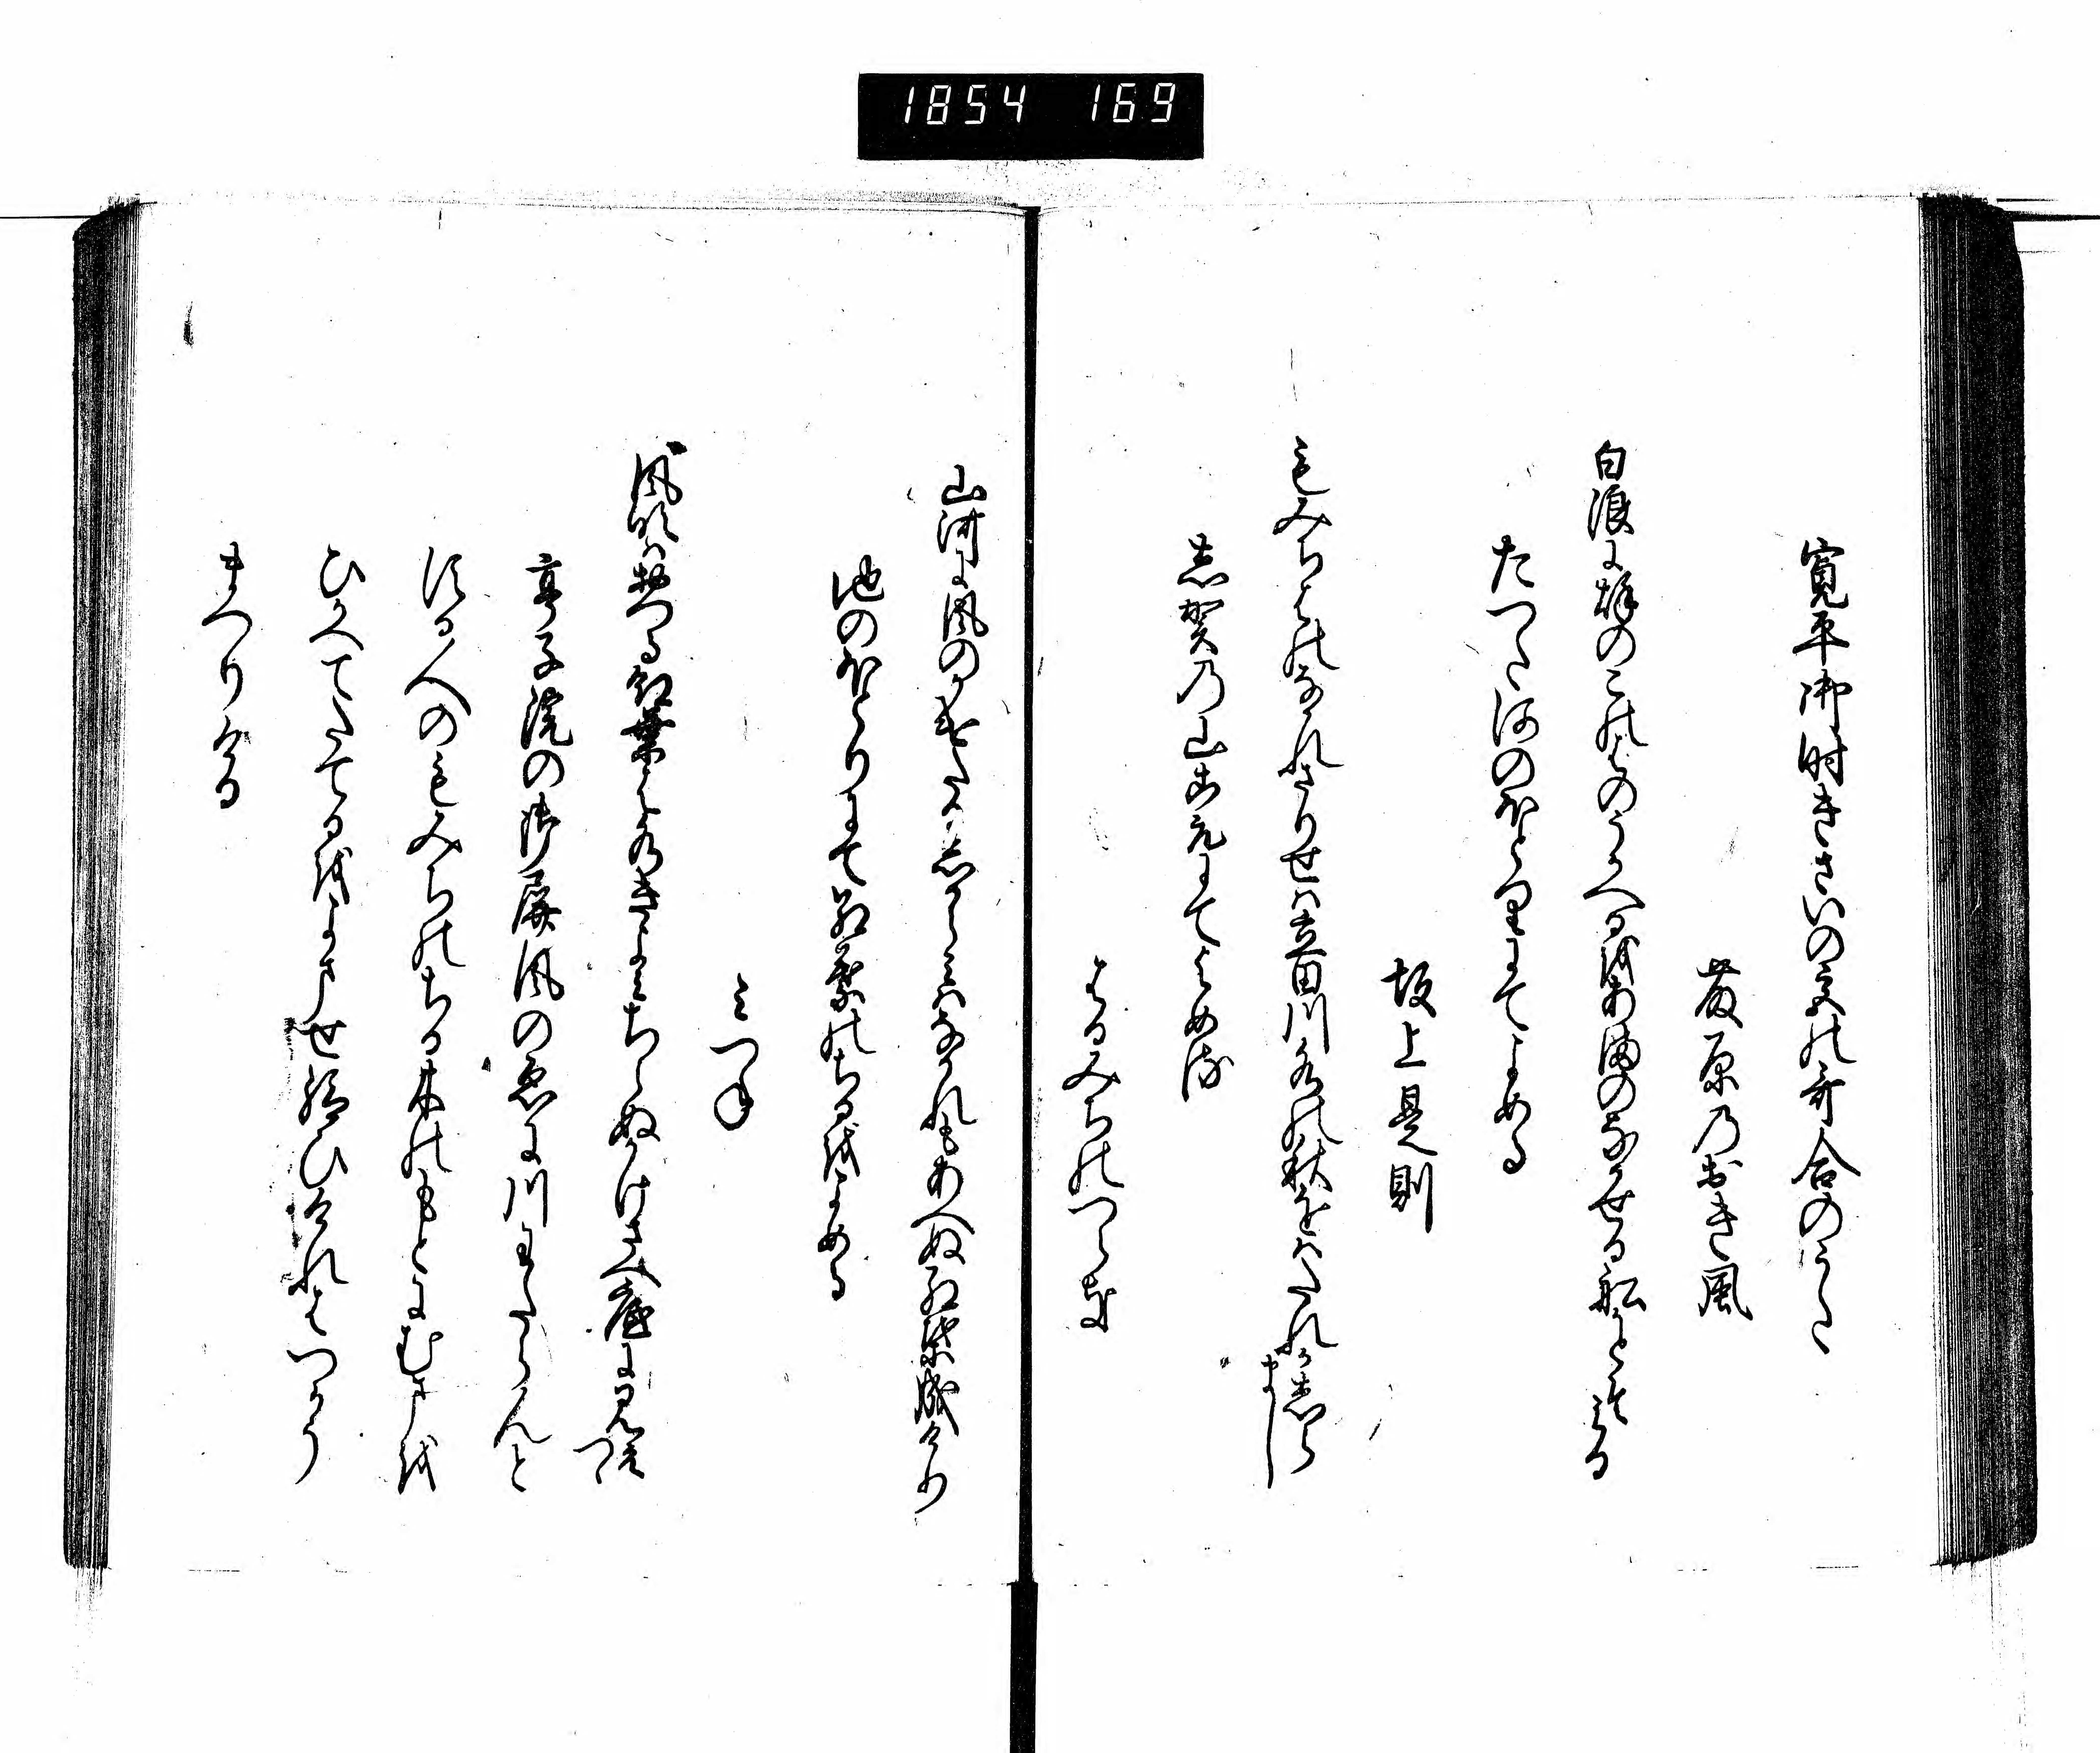 1854 169
寛平御時きさいの宮の哥合のうた
藤原のおき風
白浪に秋のこのはのうかへるをあまのなかせる船かとそみる
たつた河のほとりにてよめる
坂上是則
もみちはのなかれさりせは立田川水の秋をはたれかしら
まし
志賀の山こえにてよめる
はるみちのつらき
山河に風のかけたるしからみはなかれもあへぬ紅葉成けり
池のほとりにて紅葉のちるをよめる
みつね
風吹はおつる紅葉は水きよみちらぬかけさへ底に見え
つゝ
亭子院の御屏風のゑに川わたらんと
する人のもみちのちる木のもとにむまを
ひかへてたてるをよませ給ひけれはつかう
まつりける